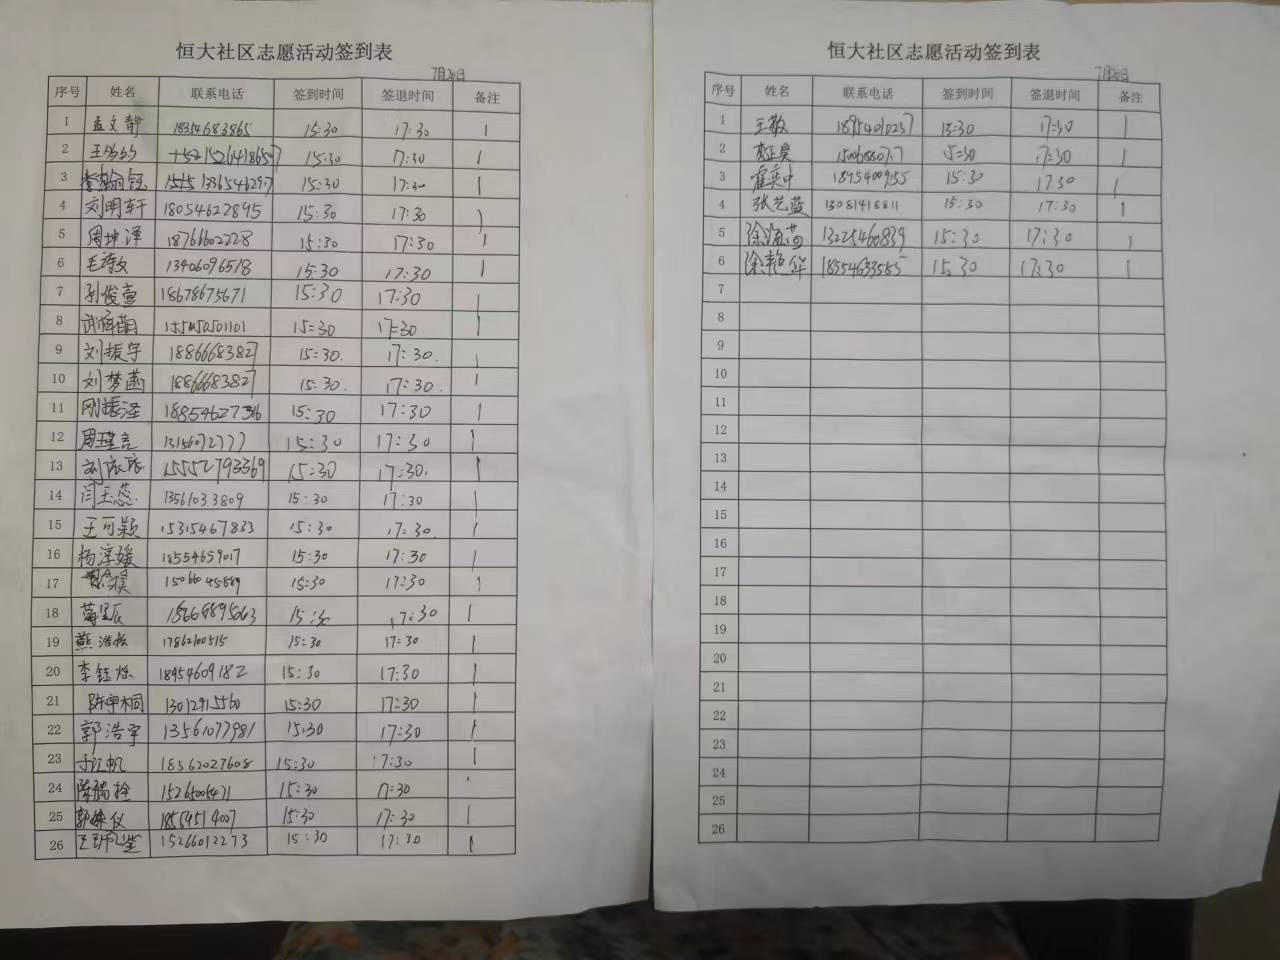 恒大社区志愿活动签到表
7月20日
序号 姓名 联系电话 签到时间 签退时间 备注
1 孟文静 18354683865 15:30 17:30 1
2 15:30 17:30 1
3 15:30 17:30 1
4 刘明轩 18054622895 15:30 17:30
5 周坤泽 18766602228 15:30 17:30 1
6 13406096518 15:30 17:30 1
7 孙俊萱 18678675671 15:30 17:30 1
8 15:30 17:30 1
9 刘振宇 18866683827 15:30. 17:30. 1
10 刘梦菡 18866683827 15:30. 17:30. 1
11 刚振泽 15:30 17:30 1
12 周瑾言 15:30 17:30 1
13 刘依依 15552793369 15:30 17:30. 1
14 闫玉蕊 13561033809 15:30 17:30 1
15 王可颖 15315467833 15:30 17:30. 1
16 杨淳媛 18554659017 15:30 17:30 1
17 15:30 17:30 1
18 15:30 17:30 1
19 燕浩松 17862100515 15:30 17:30 1
20 李钰烁 18954609182 15:30 17:30 1
21 陈宇桐 13012915560 15:30 17:30 1
22 郭浩宇 13561077981 15:30 17:30 1
23 于江帆 18562027608 15:30 17:30 1
24 15:30 17:30
25 15:30 17:30 1
26 15266012273 15:30 17:30 1
恒大社区志愿活动签到表
7月20日
序号 姓名 联系电话 签到时间 签退时间 备注
1 王敬 18954010237 15:30 17:30 1
2 15:30 17:30 1
3 霍奕中 18954009155 15:30 17:30 1
4 张艺蓝 13081418811 15:30 17:30 1
5 13225460839 15:30 17:30 1
6 徐艳华 18554633585 15:30 17:30 1
7
8
9
10
11
12
13
14
15
16
17
18
19
20
21
22
23
24
25
26